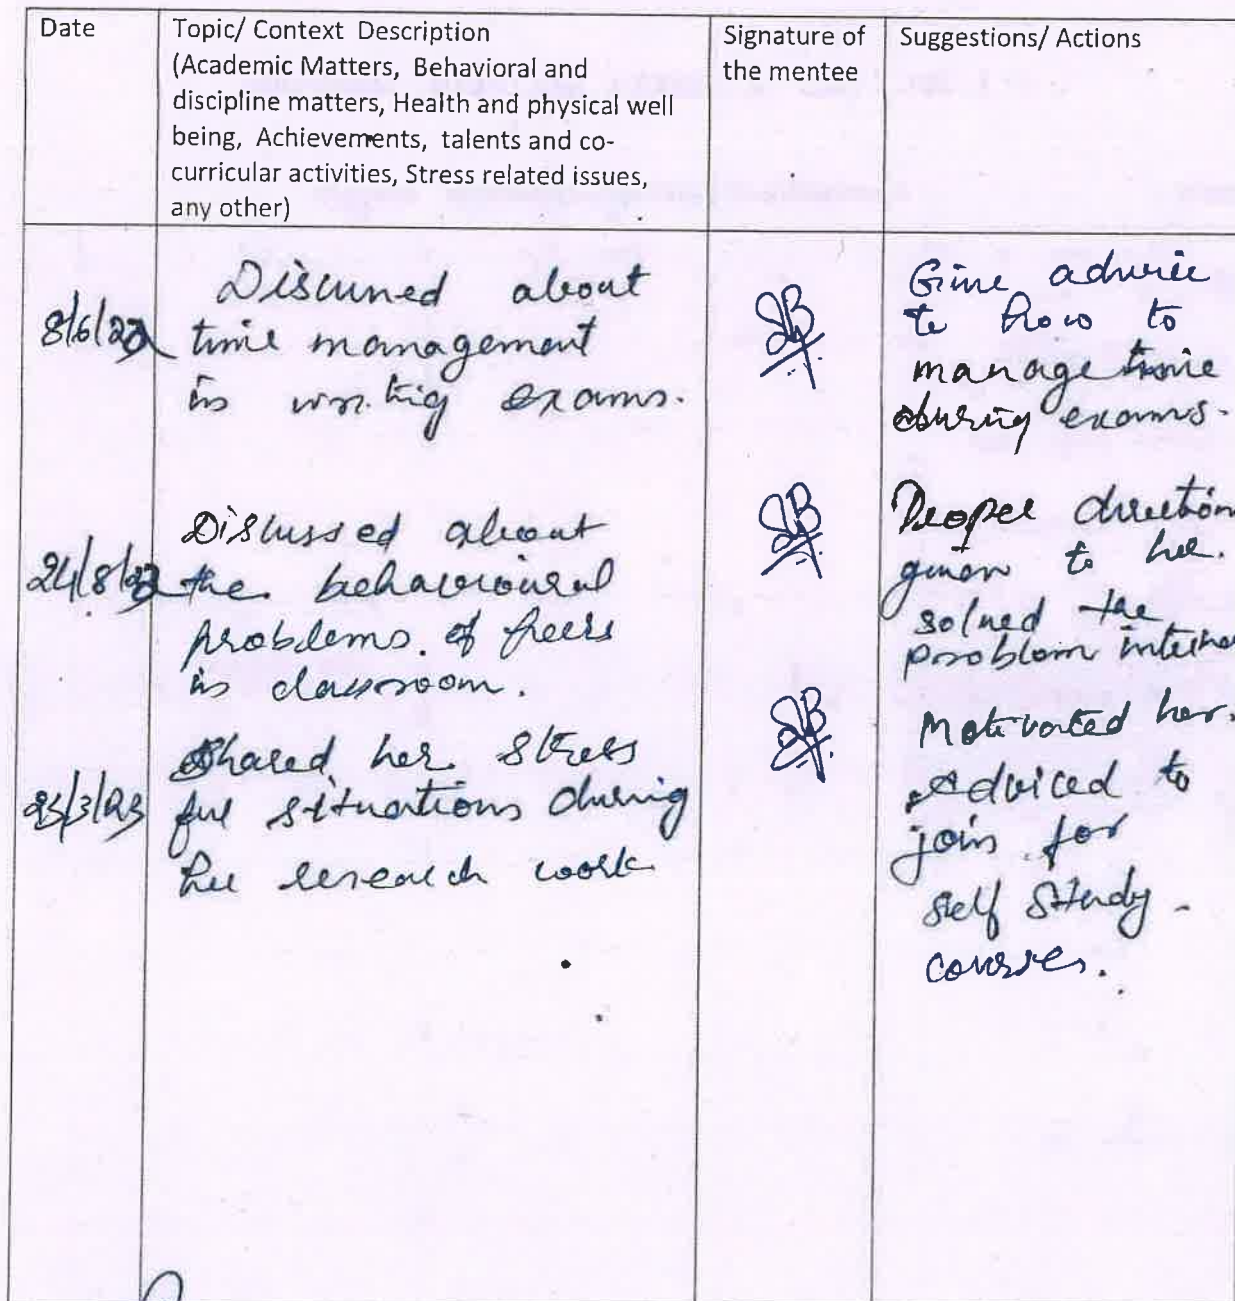 Date
Topic/ Context Description
(Academic Matters, Behavioral and
discipline matters, Health and physical well
being, Achievements, talents and co-
curricular activities, Stress related issues,
any other)
Signature of
the mentee
Suggestions/ Actions
8/6/22
Discussed about
time management
in writig exams.
Give advice
to how to
manage time
during exams.
24/8/22
Discussed about
the behavioural
problems of peers
in classroom.
Proper direction
given to her.
solved the
problem
/3/23
Shared her stress
ful situations during
her research work
Motivated her.
Adviced to
join for
self study
courses.